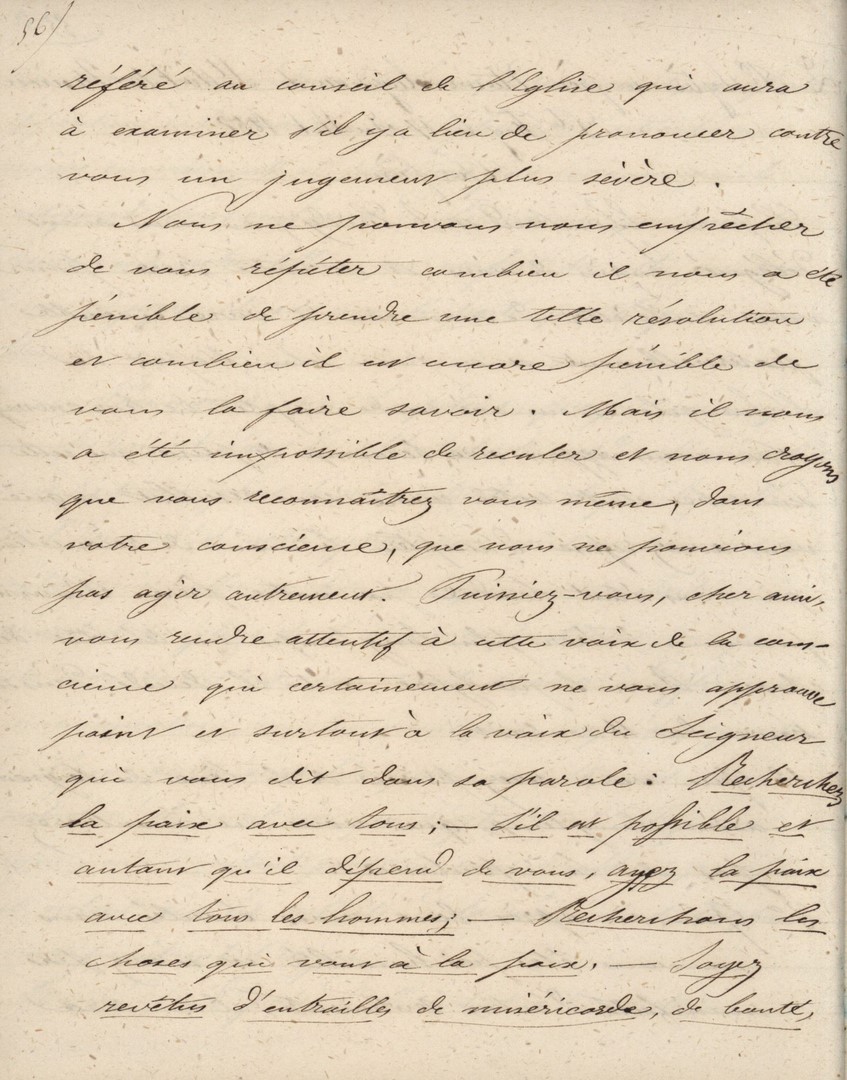 56/
référé au conseil de l'Eglise qui aura
à examiner s'il y a lieu de prononcer contre
vous un jugement plus sévère.
Nous ne pouvons nous empêcher
de vous répéter combien il nous a été
pénible de prendre une telle résolution
et combien il est encore pénible de
vous la faire savoir. Mais il nous
a été impossible de reculer et nous croyons
que vous reconnaîtrez vous même, dans
votre conscience, que nous ne pouvions
pas agir autrement. Puissiez-vous, cher ami,
vous rendre attentif à cette voix de la cons-
cience qui certainement ne vous approuve
point et surtout à la voix du Seigneur
qui vous dit dans sa parole: Recherchez
la paix avec tous; — S'il est possible et
autant qu'il dépend de vous, ayez la paix
avec tous les hommes; — Recherchons les
choses qui vont à la paix. — Soyez
revêtus d'entrailles de miséricorde, de bonté,